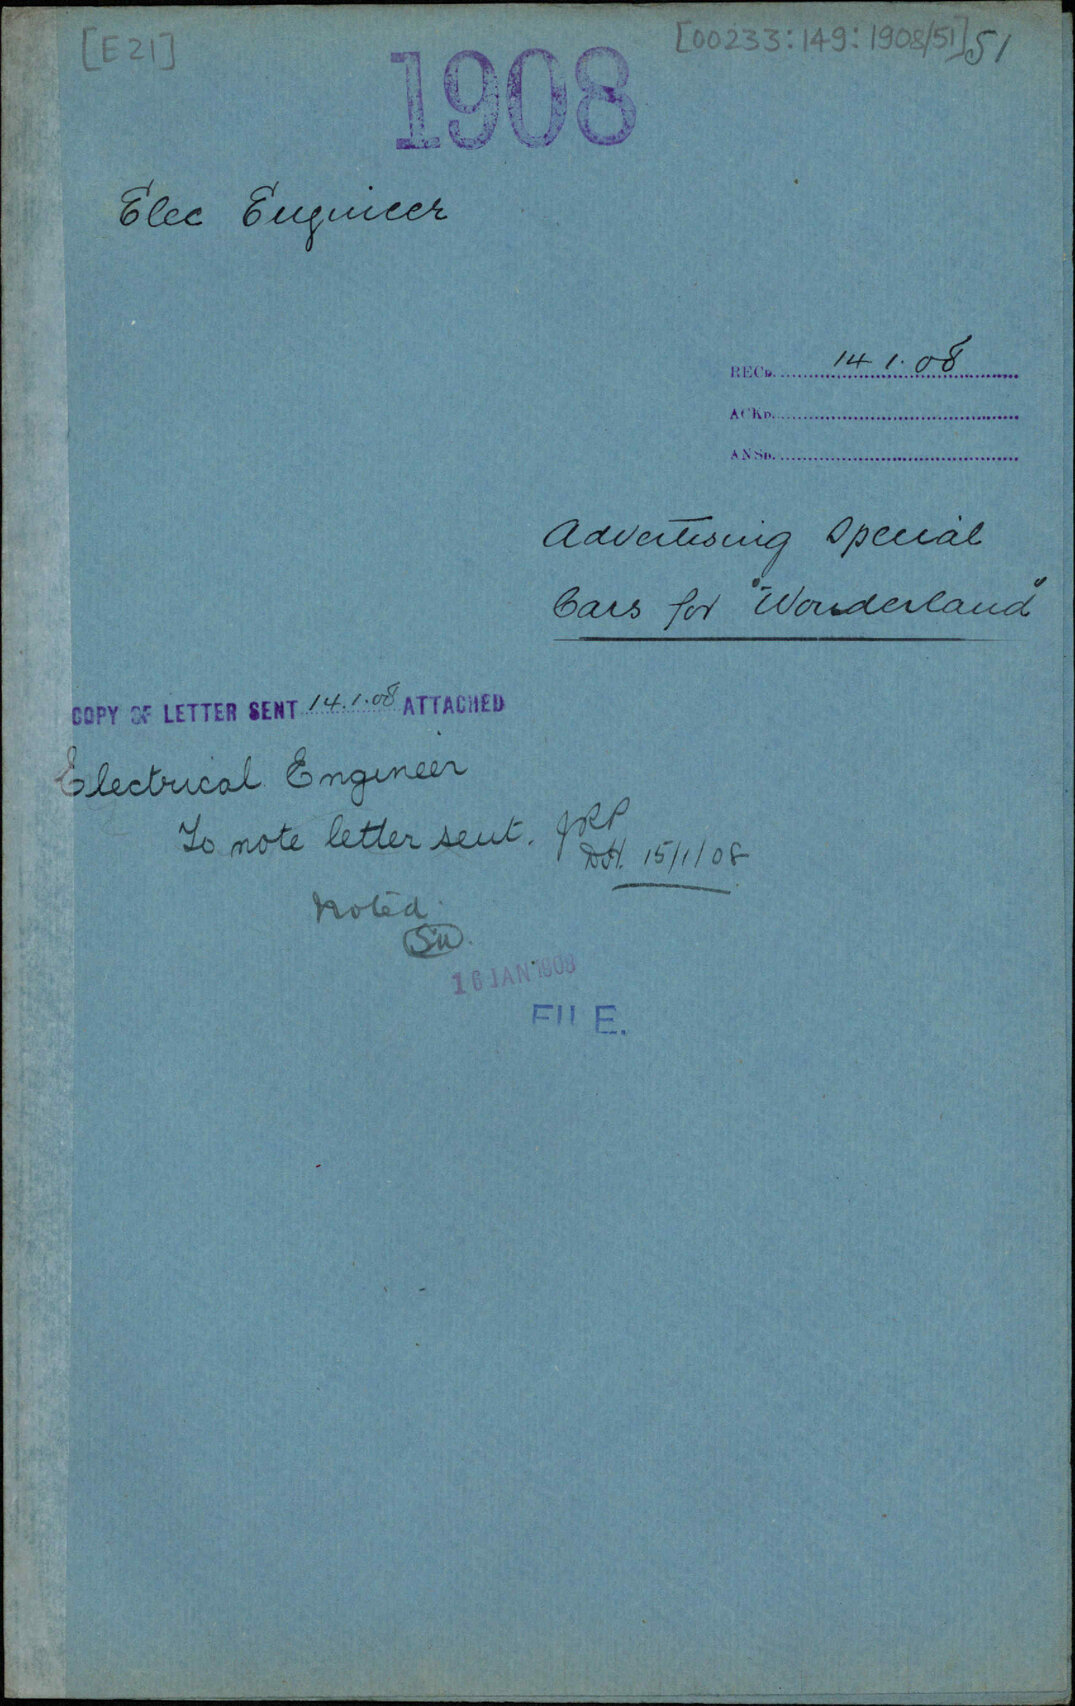 [E21]
[00233:149:1908/51] 51
1908
Elec Engineer
RECD. 14.1.08
ACKD.
ANSD.
Advertising Special
Cars for "Wonderland"
COPY OF LETTER SENT 14.1.08 ATTACHED
Electrical Engineer
To note letter sent. JRP
DH. 15/1/08
Noted.
16 JAN 1908
FILE.